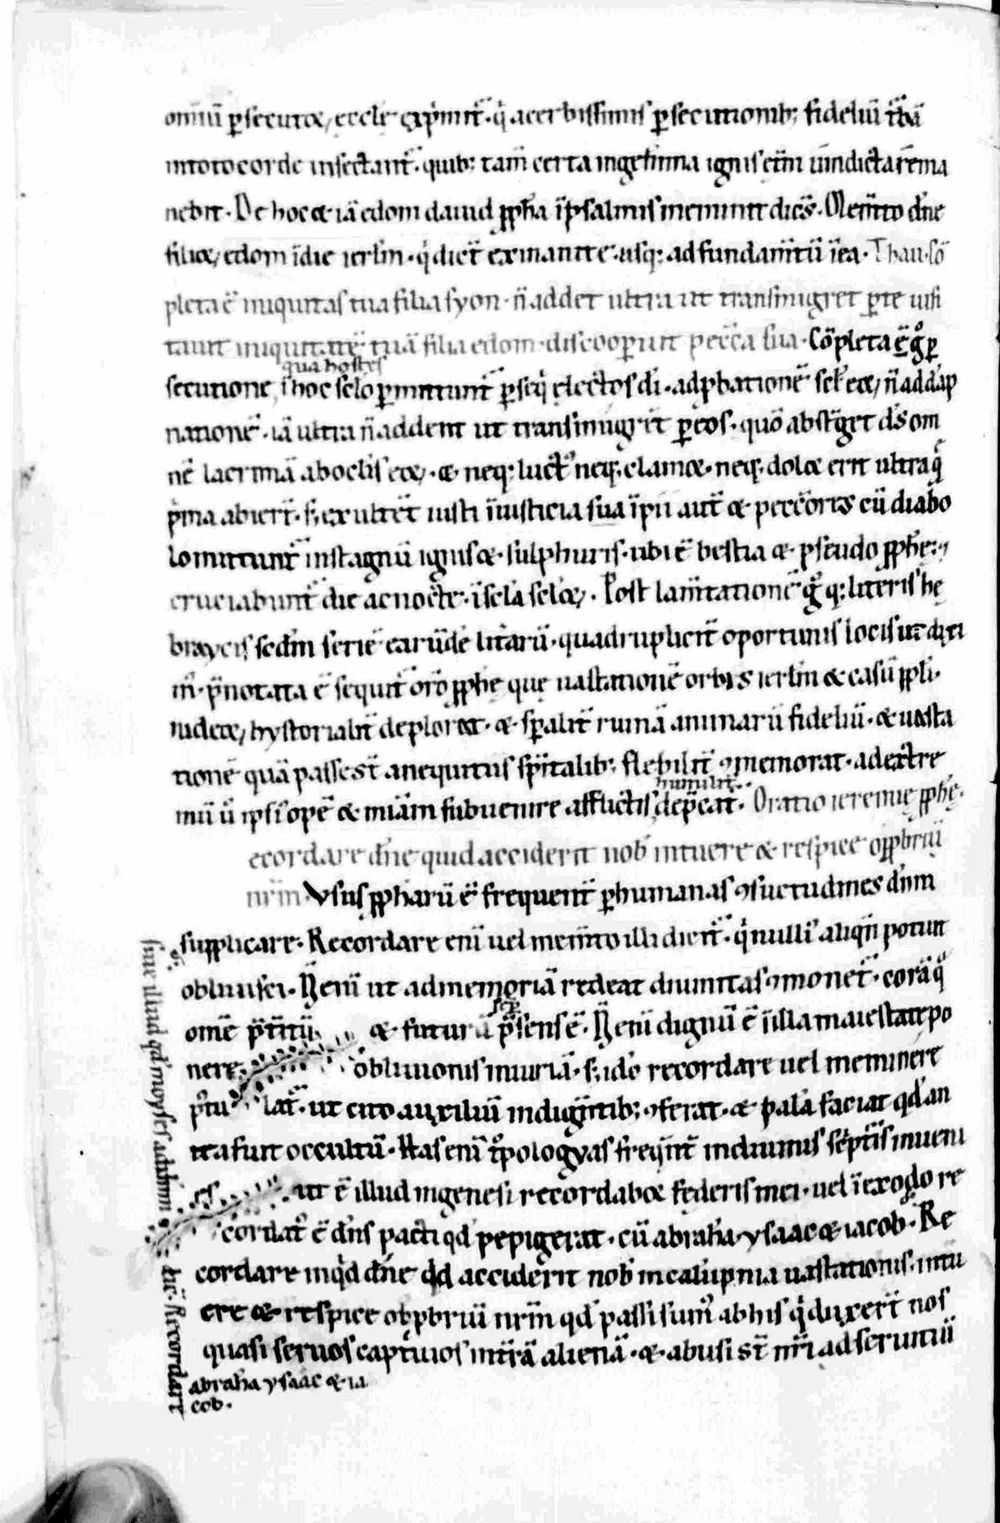 omniū p̱secutoꝝ eccłę exp̄mit̄· q̇ acerbissimis p̱secutionib; fideliū t̄bā
intoto corde insectant̄· quib; tam̄ certa ingehenna ignis et̄ni uindicta rēma
nebit· De hoc & iā edom dauid ꝓpħa īpsalmis meminit dic̄s· Mem̄to dn̄e
filioꝝ edom īdie ierłm· q̇ dict̄ exinanite· usq; adfundam̄tū īea· Thau· Cō
pleta ē iniquitas tua filia syon· n̄ addet ultra ut transmigret p̱te uisi
tauit iniquitatē tuā filia edom· discooperuit pecc̄a tua· Cōpleta ē g̊ p̱
qua hostes
secutione ī hoc sclo p̱mittunt̄ p̱seq̇ electos di· adp̱bationē scłeꝝ n̄ addāp
nationē· iā ultra n̄ addent ut transmigrēt p̱eos· quō abst̄get ds̄ om
nē lacrimā aboclis eoꝝ· & neq; luct᷒ neq; clamor· neq; dolor erit ultra q̇
p̄ma abier̄t· s; exultēt iusti īiusticia sua īpii aut̄ & pecc̄ores cū diabo
lo mittunt̄ instagnū ignis & sulphuris· ubi ē bestia & pseudo ꝓpħę·
cruciabunt̄ die ac nocte· ī scła scłoꝝ· Post lam̄tationē g̊ q; literis hę
brayeis scdm̄ seriē earūdē lit̄arū· quadruplicit̄ oportunis locis
m̄· p̄notata ē sequit̄ orō ꝓpħę que uastationē orbis ierłm & casū ꝓpłi
iudeoꝝ hystorialit̄ deplorat· & sp̄alit̄ ruinā animarū fideliū· & uasta
tionē quā passe st̄ anequitiis sp̄italib; flebilit̄ ꝯmemorat· adextre
humilit̄
mū ū ipsi᷒ opē & miām subuenire afflictis dep̄cat̄· Oratio ieremię ꝓpħę·
ecordare dn̄e quid acciderit nob̄ intuere & respice oꝓpbriū
nr̄m Vsus ꝓpħarū ē frequent̄ p̱ humanas ꝯsuetudines dn̄m
supplicare· Recordare eni᷒ uel mem̄to illi dict̄· q̇ nulli᷒ aliqn̄ potuit
obliuisci· N̄ eni᷒ ut admemoriā redeat diuinitas ꝯmonet̄· corā q̊
sēp
omē p̄t̄itū & futurū p̄sens ē· N̄ eni᷒ dignū ē ī illa maiestate po
nere obliuionis iniuriā· s; ideo recordare uel meminere
p̄tu lat̄· ut cito auxiliū indign̄tib; ꝯferat· & palā faciat qd̄ an
tea fuit occultū· Has eni᷒ t̊pologyas freq̄nt̄ indiuinis sc̄ptis inueni
es· ut ē illud ingenesi recordabor federis mei· uel ī exodo re
cordat᷒ ē dn̄s pacti qd̄ pepigerat· cū abrahā ysaac & iacob· Re
cordare inq̇d dn̄e qd̄ acciderit nob̄ incalūpnia uastationis· intu
ere & respice obp̱briū nr̄m qd̄ passi sum᷒ ab his q̇ duxer̄t nos
quasi seruos captiuos int̄rā alienā· & abusi st̄ nr̄i ad seruitiū
siue illud qd̄ moyses addnm̄ dic̄· Recordare
abraħa ysaac & ia
cob·